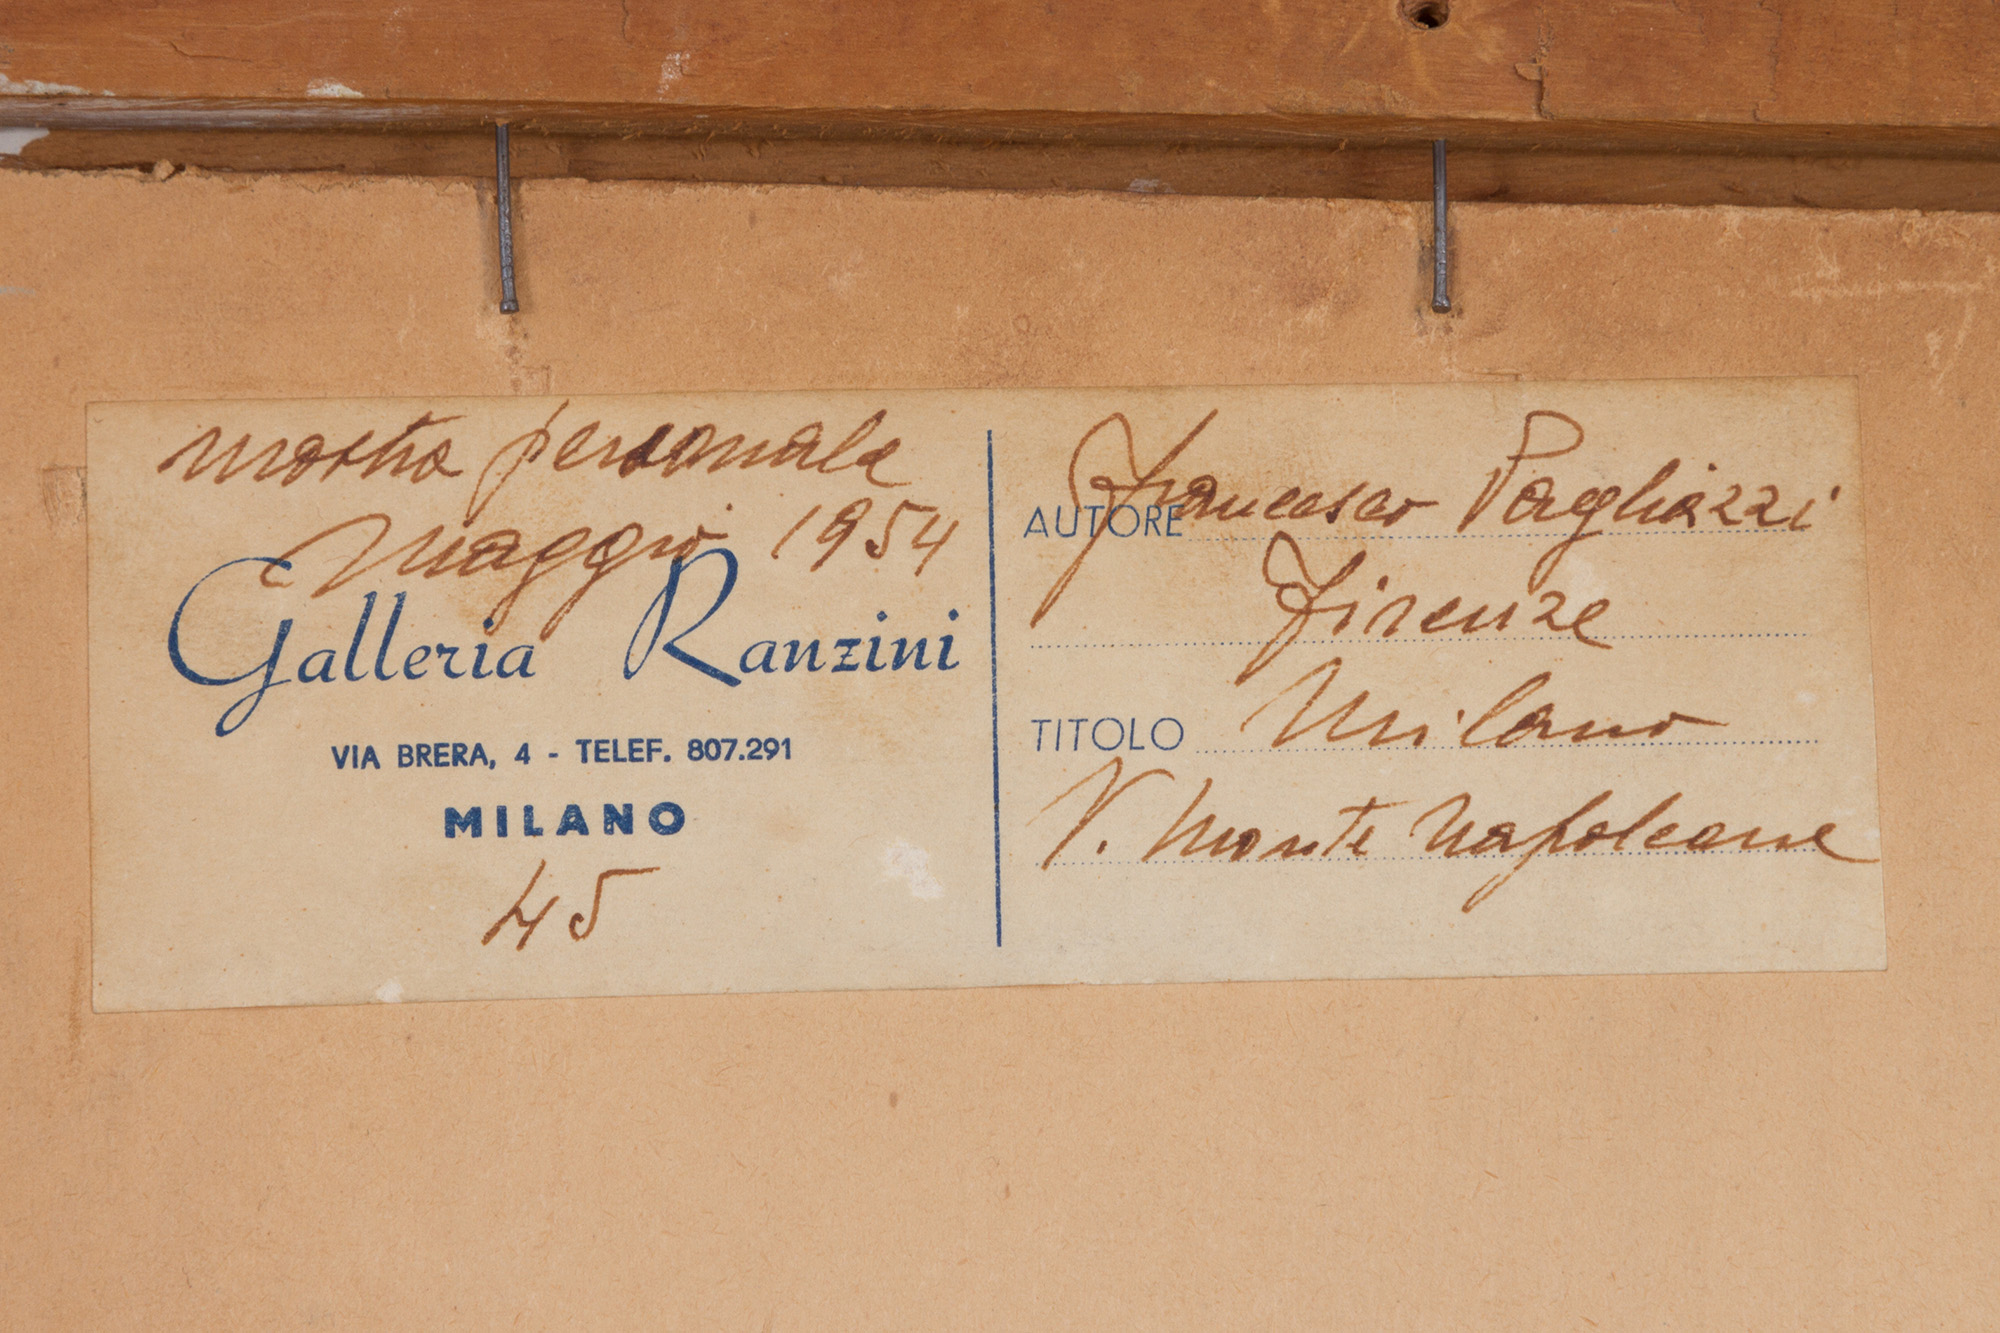 mostra personale
Maggio 1954
Galleria Ranzini
VIA BRERA, 4 - TELEF. 807.291
MILANO
45
AUTORE Francesco Pagliazzi
Firenze
TITOLO Milano
V. Monte Napoleone